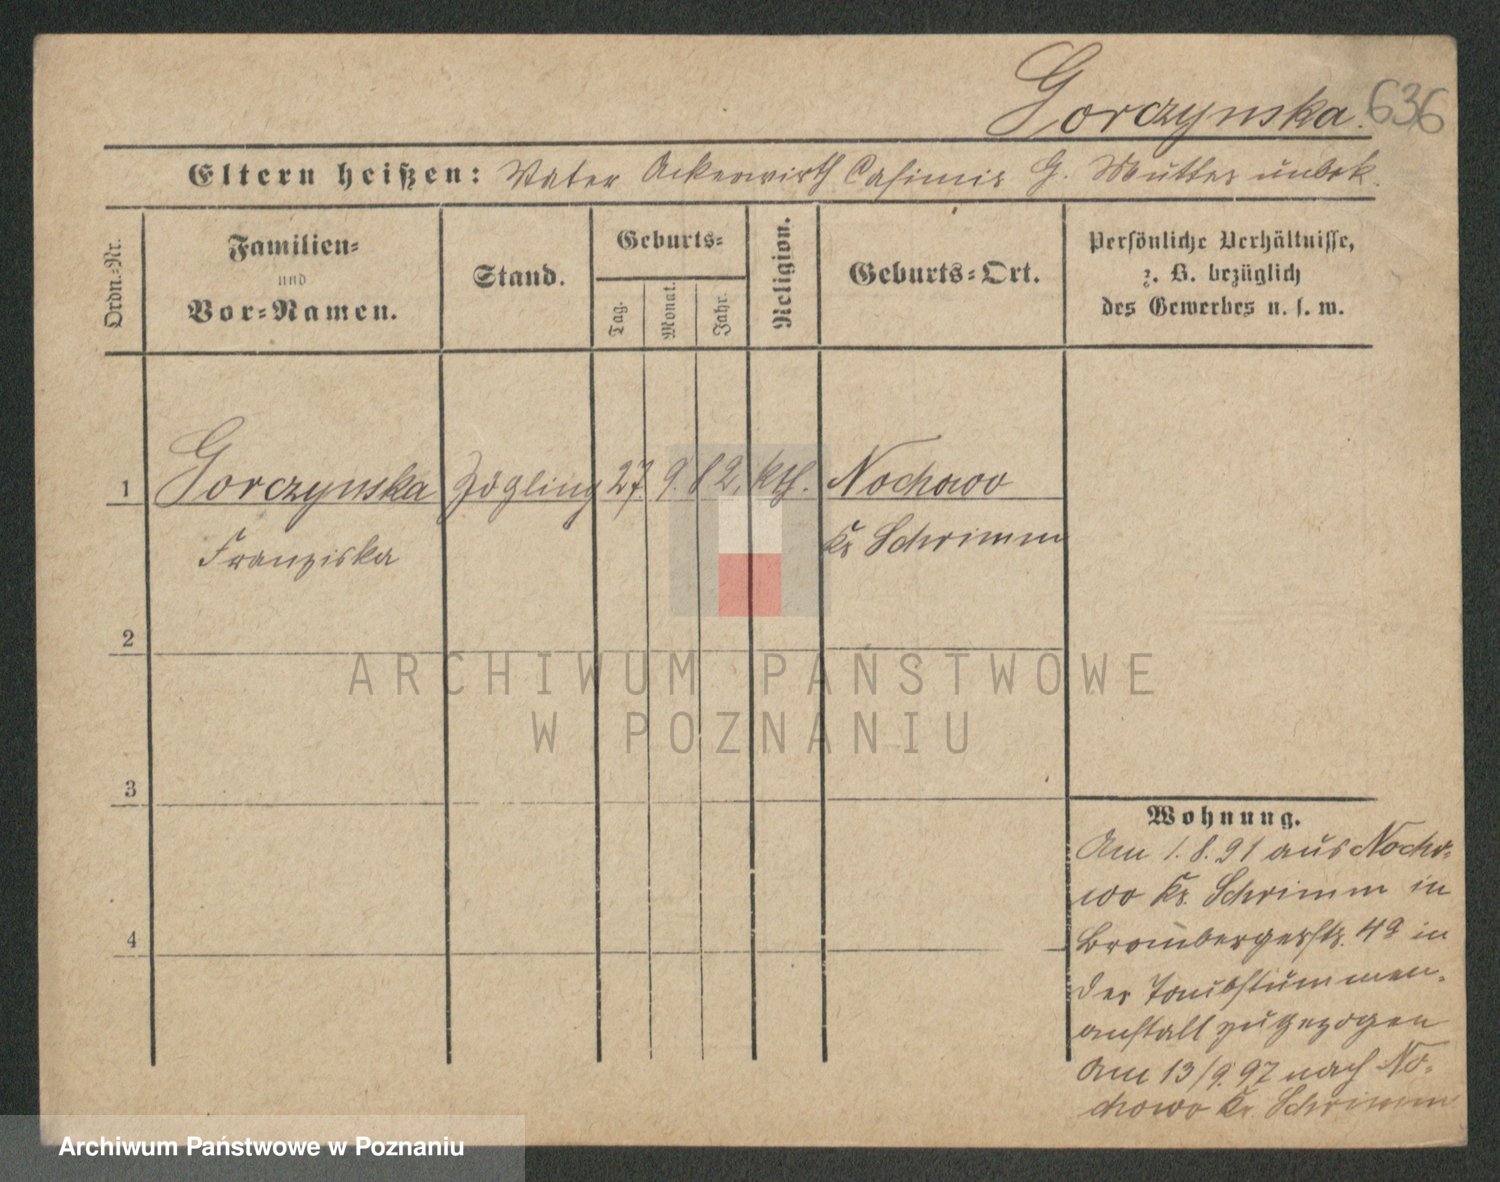 Gorczynska. 636
Eltern heißen: Vater Ackerwirth Casimir G. Mutter unbek.
Ordn.-Nr.
Familien-
und
Vor-Namen.
Stand.
Geburts-
Tag.
Monat.
Jahr.
Religion.
Geburts-Ort.
Persönliche Verhältnisse,
z. B. bezüglich
des Gewerbes u. s. w.
1 Gorczynska Zögling 27. 9. 82. kth. Nochowo
Franziska Kr Schrimm
2
ARCHIWUM PAŃSTWOWE
W POZNANIU
3
Wohnung.
Am 1. 8. 91 aus Nocho-
wo Kr. Schrimm in
4
Brombergerstr. 42 in
der Taubstummen-
anstalt zugezogen
Am 13/9. 97 nach No-
chowo Kr. Schrimm
Archiwum Państwowe w Poznaniu